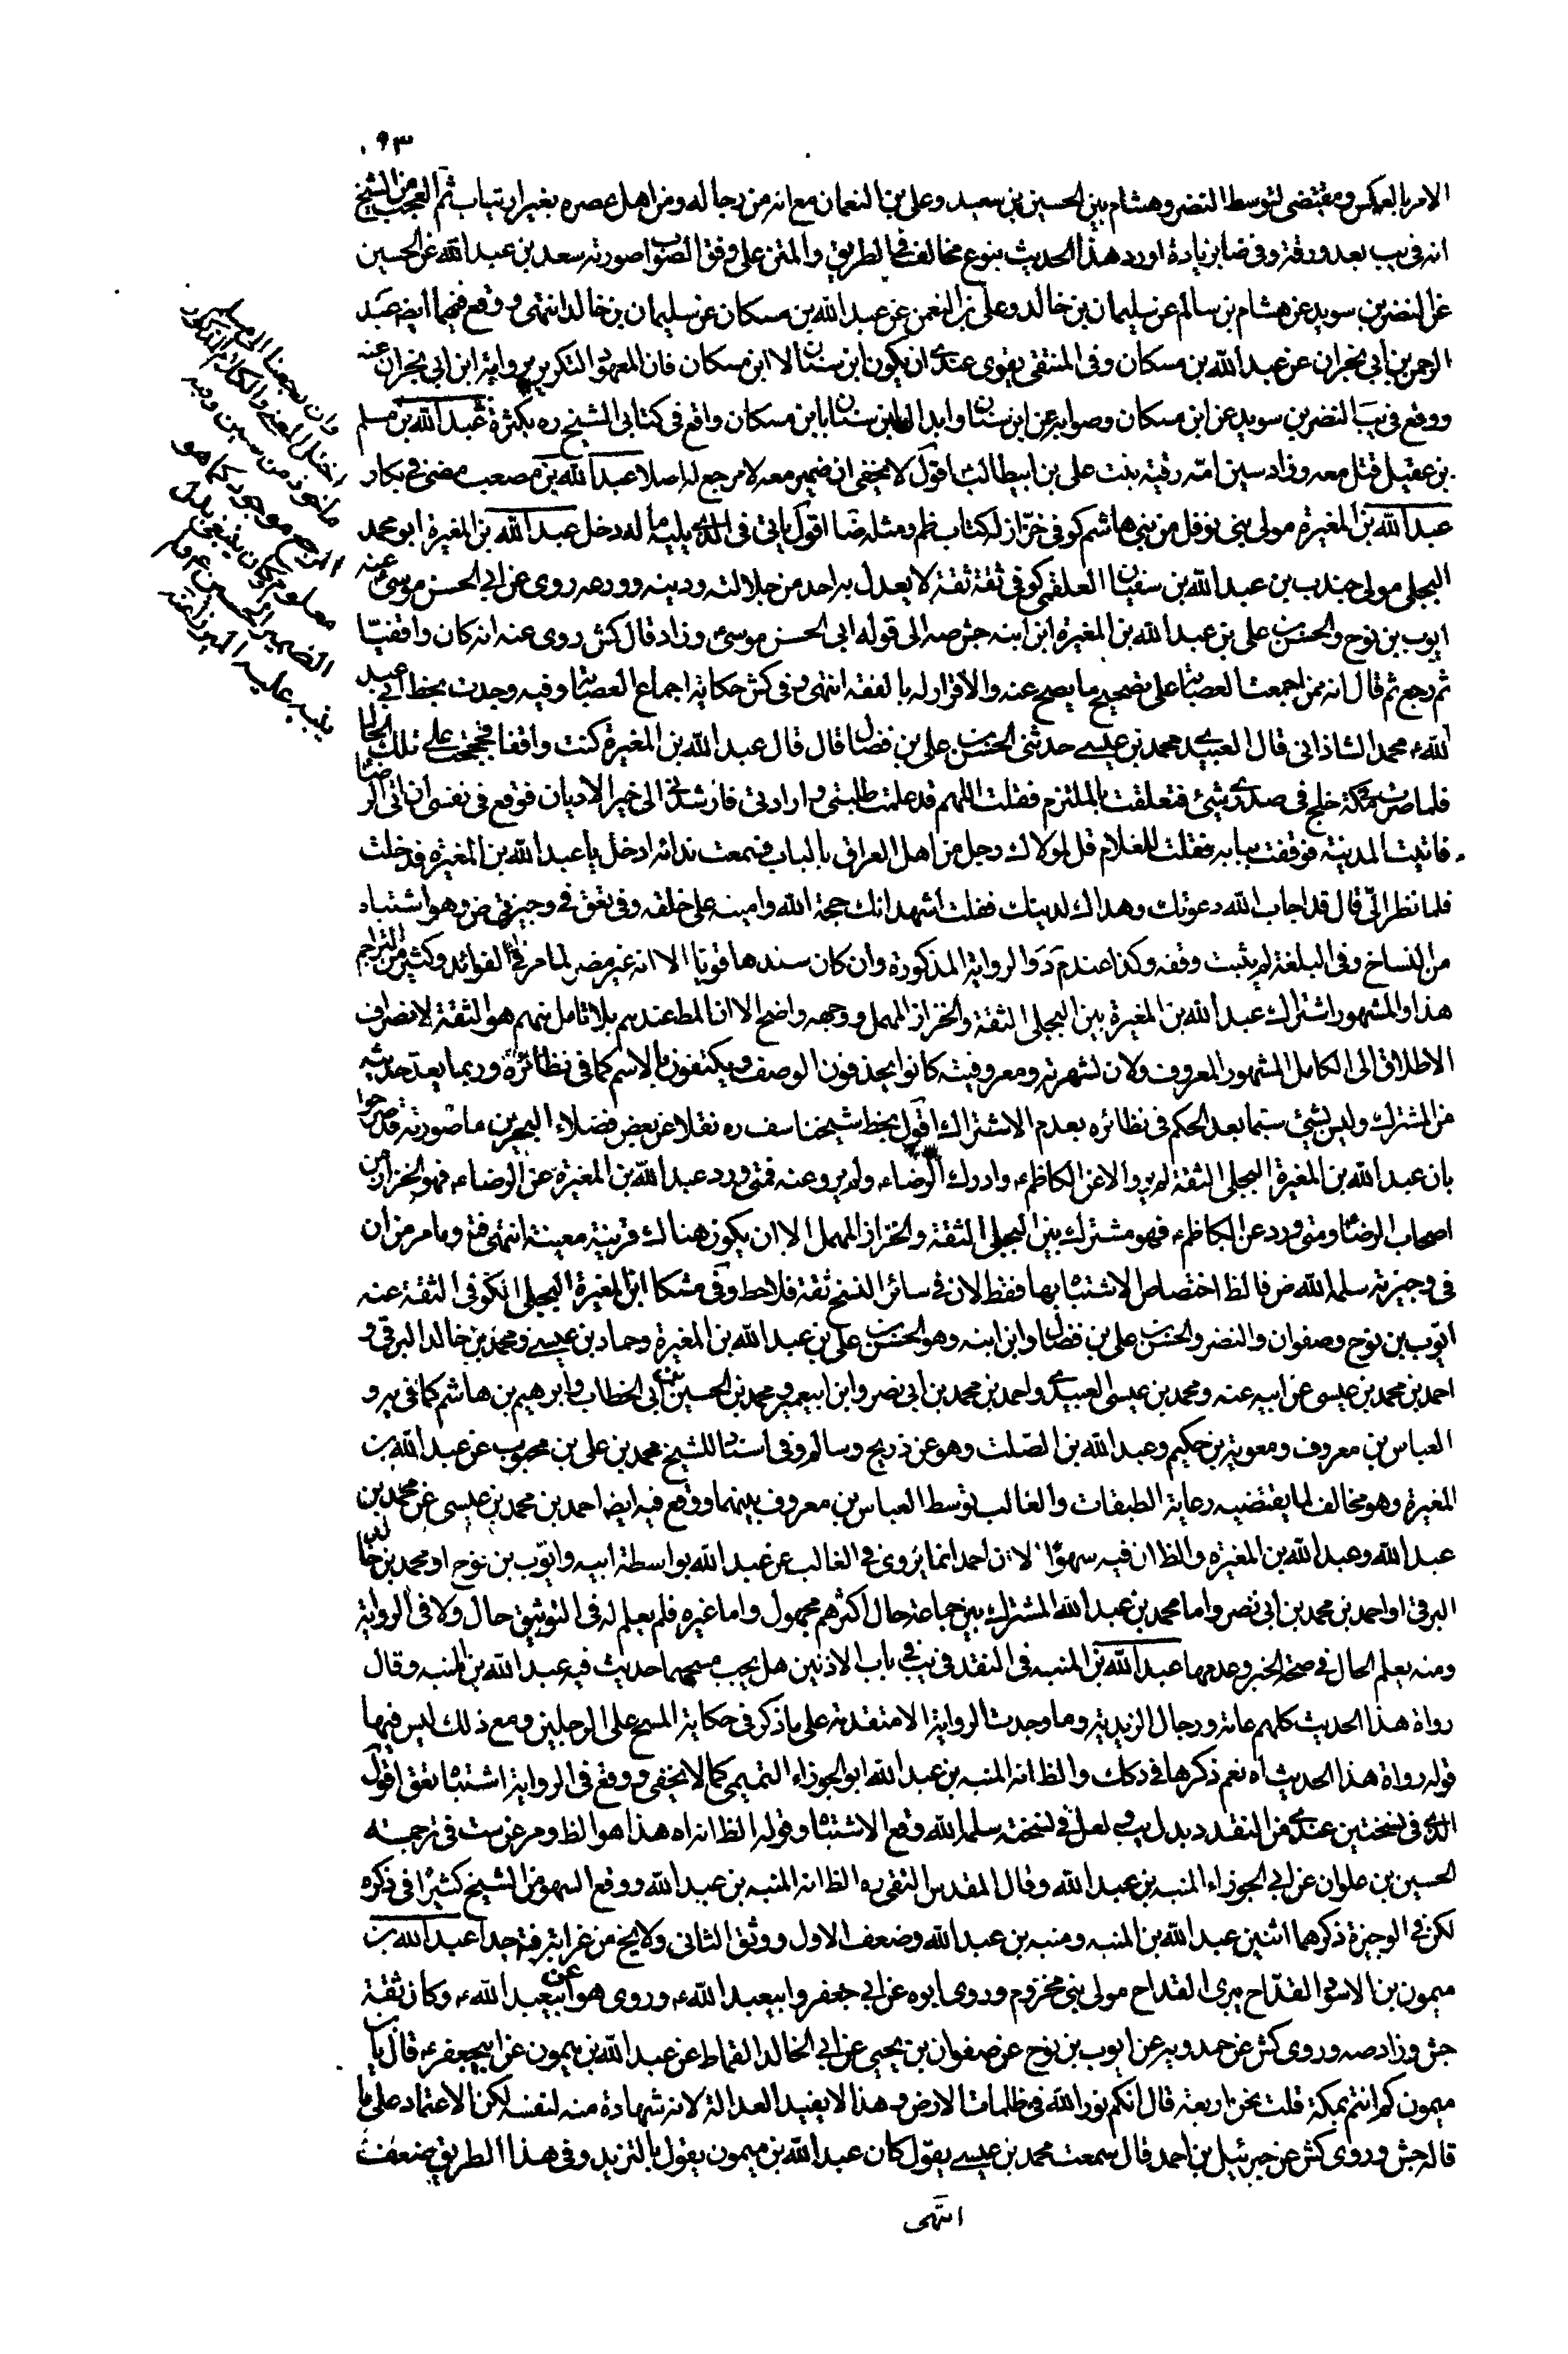 ٩٣
الامر بالعكس ومقتضى لتوسط النضر وهشام بين الحسين بن سعيد وعلى بن النعمان مع انه من رجاله ومن اهل عصره بغير ارتياب ثم العجب من الشيخ
انه في يب بعد ورقة وفى صا بزيادة اورد هذا الحديث بنوع مخالف في الطريق والمتن على وفق الصواب صورته سعد بن عبد الله عن الحسين
عن النضر بن سويد عن هشام بن سالم عن سليمان بن خالد وعلى بن النعمن عن عبد الله بن مسكان عن سليمان بن خالد انتهى ووقع فيهما ايضا عبد
الرحمن بن أبي نجران عن عبد الله بن مسكان وفى المنتقى يقوى عندى ان يكون ابن سنان لا ابن مسكان فان المعهود التكرير رواية ابن ابي نجران عنه
ووقع في يب النضر بن سويد عن ابن مسكان وصوابه عن ابن سنان وابدال ابن سنان بابن مسكان واقع في كتابى الشيخ ره بكثرة عبد الله بن مسلم
بن عقيل قتل معه وزاد سين امه رقية بنت على بن ابيطالب اقول لا يخفى ان ضمير معه لا مرجع له اصلا عبد الله بن مصعب مضى في بكار
عبد الله بن المغيرة مولى بنى نوفل من بنى هاشم كوفى خزاز له كتاب ظم ومثله ضا اقول ياتى في الذى يليه ما له دخل عبد الله بن المغيرة ابو محمد
البجلى مولى جندب بن عبد الله بن سفيان العلقمى كوفى ثقة ثقة لا يعدل به احد من جلالته ودينه وورعه روى عن ابي الحسن موسى عنه
ايوب بن نوح والحسن بن على بن عبد الله بن المغيرة ابن ابنه جش صه الى قوله ابى الحسن موسى وزاد قال كش روى عنه انه كان واقفيا
ثم رجع ثم قال انه ممن اجمعت العصابة على تصحيح ما يصح عنه والاقرار له بالفقه انتهى وفى كش حكاية اجماع العصابة وفيه وجدت بخط ابي عبد
الله محمد الشاذانى قال العبيدى محمد بن عيسى حدثنى الحسن بن على بن فضال قال قال عبد الله بن المغيرة كنت واقفا فحججت على تلك الحالة
فلما صرت بمكة خلج فى صدرى شئ فتعلقت بالملتزم فقلت اللهم قد علمت طلبتى وارادتى فارشدنى الى خير الاديان فوقع في نفسى ان اتى الرضا
فاتيت المدينة فوقفت ببابه وفقلت للغلام قل لمولاك رجل من اهل العراق بالباب فسمعت ندائه ادخل يا عبد الله بن المغيرة فدخلت
فلما نظر الى قال قد اجاب الله دعوتك وهداك لدينك فقلت اشهد انك حجة الله وامينه على خلقه وفى تعق في وجيزتى ض وهو اشتباه
من النساخ وفى البلغة لم يثبت وقفه وكذا عند م د والرواية المذكورة وان كان سندها قويا الا انه غير مضر لما مر في الفوائد وكثير من التراجم
هذا والمشهور اشتراك عبد الله بن المغيرة بين البجلى الثقة والخزاز المهمل ووجهه واضح الا ان المط عندهم بلا تامل منهم هو الثقة لانصراف
الاطلاق الى الكامل المشهور المعروف ولان لشهرته ومعروفيته كانوا يحذفون الوصف ويكتفون بالاسم كما في نظائره وربما يعد حديثه
من المشترك وليس بشئ سيما بعد الحكم في نظائره بعدم الاشتراك اقول بخط شيخنا سف ره نقلا عن بعض فضلاء البحرين ما صورته قد صرحوا
بان عبد الله بن المغيرة البجلى الثقة لم يرو الا عن الكاظم وادرك الرضا ولم يرو عنه فمتى ورد عبد الله بن المغيرة عن الرضا فهو الخزاز من
اصحاب الرضا ومتى ورد عن الكاظم فهو مشترك بين البجلى الثقة والخزاز المهمل الا ان يكون هناك قرينة معينة انتهى فت وما مر من ان
في وجيزته سلمه الله ض فالظ اختصاص الاشتباه بها فقط لان في سائر النسخ ثقة فلاحظ وفى مشكا ابن المغيرة البجلى الكوفى الثقة عنه
ايوب بن نوح وصفوان والنضر والحسن بن على بن فضال وابن ابنه وهو الحسن بن على بن عبد الله بن المغيرة وحماد بن عيسى ومحمد بن خالد البرقى و
احمد بن محمد بن عيسى عن ابيه عنه ومحمد بن عيسى العبيدى واحمد بن محمد بن ابى نصر وابن ابيعمير ومحمد بن الحسين بن ابي الخطاب وابرهيم بن هاشم كما في يه و
العباس بن معروف ومعوية بن حكيم وعبد الله بن الصلت وهو عن ذريح وسالم وفى اسناد للشيخ محمد بن على بن محبوب عن عبد الله بن
المغيرة وهو مخالف لما يقتضيه رعاية الطبقات والغالب توسط العباس بن معروف بينهما ووقع فيه ايضا احمد بن محمد بن عيسى عن محمد بن
عبد الله وعبد الله بن المغيرة والظ ان فيه سهوا لان احمد انما يروى في الغالب عن عبد الله بواسطة ابيه وايوب بن نوح او محمد بن خالد
البرقى او احمد بن محمد بن ابى نصر واما محمد بن عبد الله المشترك بين جماعة حال اكثرهم مجهول واما غيره فلم يعلم له في التوثيق حال ولا في الرواية
ومنه يعلم الحال في صحة الخبر وعدمها عبد الله بن المنبه فى النقد في يب في باب الاذنين هل يجب مسحهما حديث فيه عبد الله بن المنبه وقال
رواة هذا الحديث كلهم عامة ورجال الزيدية وما وجدت الرواية الا متقدمة على ما ذكر في حكاية المسح على الرجلين ومع ذلك ليس فيها
قوله رواة هذا الحديث اه نعم ذكرها في دكك والظ انه المنبه بن عبد الله ابو الجوزاء التميمى كما لا يخفى ووقع في الرواية اشتباه تعق اقول
الذى فى نسختين عندى من النقد د بدل يب ولعل في نسخته سلمه الله وقع الاشتباه وقوله الظ انه اه هذا هو الظ ومر عن ست في ترجمة
الحسين بن علوان عن ابي الجوزاء المنبه بن عبد الله وقال المقدس التقى ره الظ انه المنبه بن عبد الله ووقع السهو من الشيخ كثيرا في ذكره
لكن في الوجيزة ذكرهما اثنين عبد الله بن المنبه ومنبه بن عبد الله وضعف الاول ووثق الثانى ولا يخ من غرابة فت جدا عبد الله بن
ميمون بن الاسود القداح يبرى القداح مولى بنى مخزوم وروى ابوه عن ابي جعفر وابيعبد الله وروى هو عن ابيعبد الله وكان ثقة
جش وزاد صه وروى كش عن حمدويه عن ايوب بن نوح عن صفوان بن يحيى عن ابي الخالد القماط عن عبد الله بن ميمون عن ابيجعفر قال يابن
ميمون كم انتم بمكة قلت نحن اربعة قال انكم نور الله في ظلمات الارض وهذا لا يفيد العدالة لانه شهادة منه لنفسه لكن الاعتماد على ما
قاله جش وروى كش عن جبرئيل بن احمد قال سمعت محمد بن عيسى يقول كان عبد الله بن ميمون يقول بالتزيد وفى هذا الطريق ضعف
انتهى